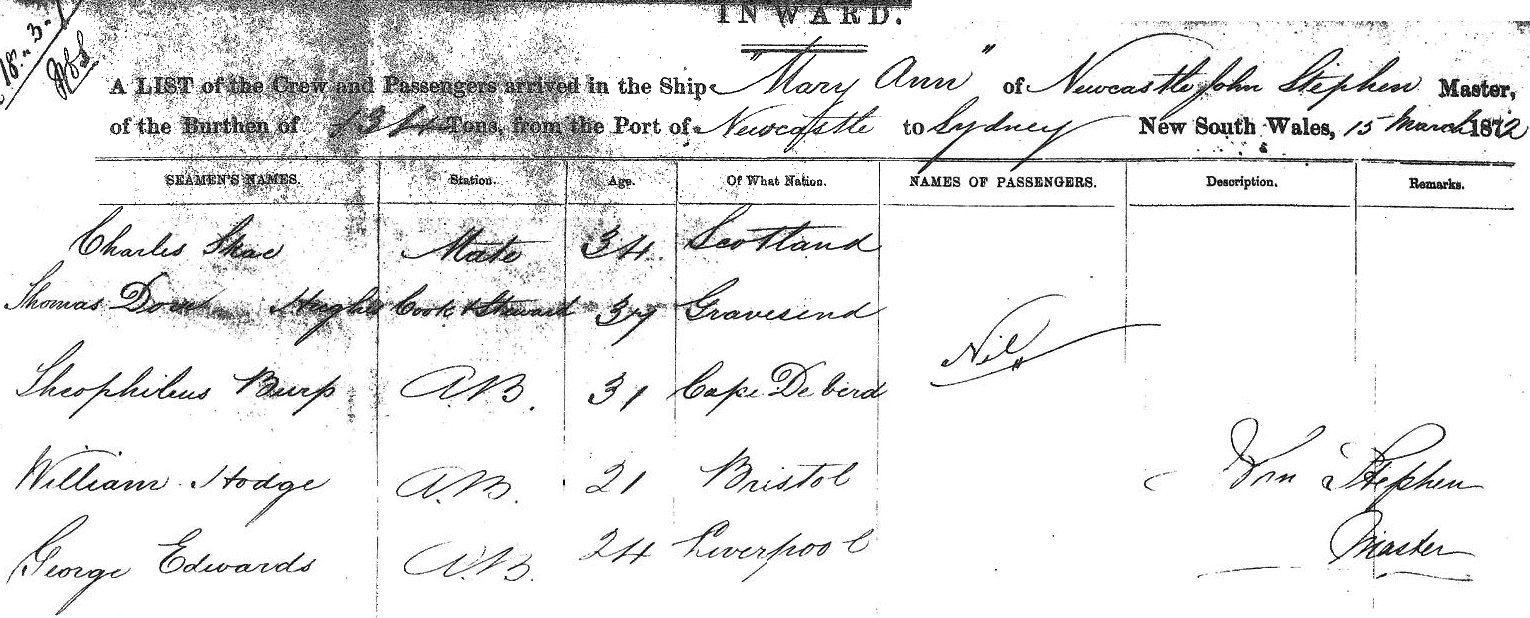 18.. 3.
INWARD.
A LIST of the Crew and Passengers arrived in the Ship "Mary Ann" of Newcastle, John Stephen Master,
of the Burthen of 134 Tons, from the Port of Newcastle to Sydney New South Wales, 15 March 1872
SEAMEN'S NAMES. Station. Age. Of What Nation. NAMES OF PASSENGERS. Description. Remarks.
Charles Skae Mate 34 Scotland
Thomas Hughes Cook & Steward 37 Gravesend
Nil
Theophilus Burp A.B. 31 Cape De Verd
William Hodge A.B. 21 Bristol
Stephen
George Edwards A.B. 24 Liverpool
Master